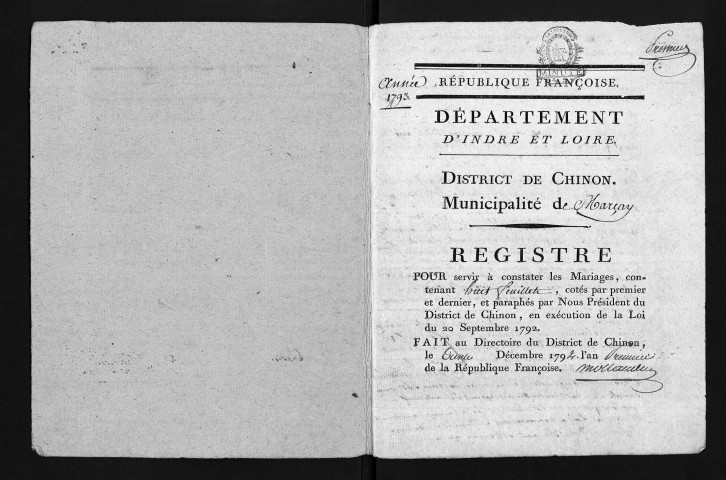 Premier
Année
1793.
MINUTE
RÉPUBLIQUE FRANÇOISE.
DÉPARTEMENT
D'INDRE ET LOIRE.
DISTRICT DE CHINON.
Municipalité de Marçay
REGISTRE
POUR servir à constater les Mariages, con-
tenant huit feuillets, cotés par premier
et dernier, et paraphés par Nous Président du
District de Chinon, en exécution de la Loi
du 20 Septembre 1792.
FAIT au Directoire du District de Chinon,
le Décembre 1792. l'an Premier
de la République Françoise.